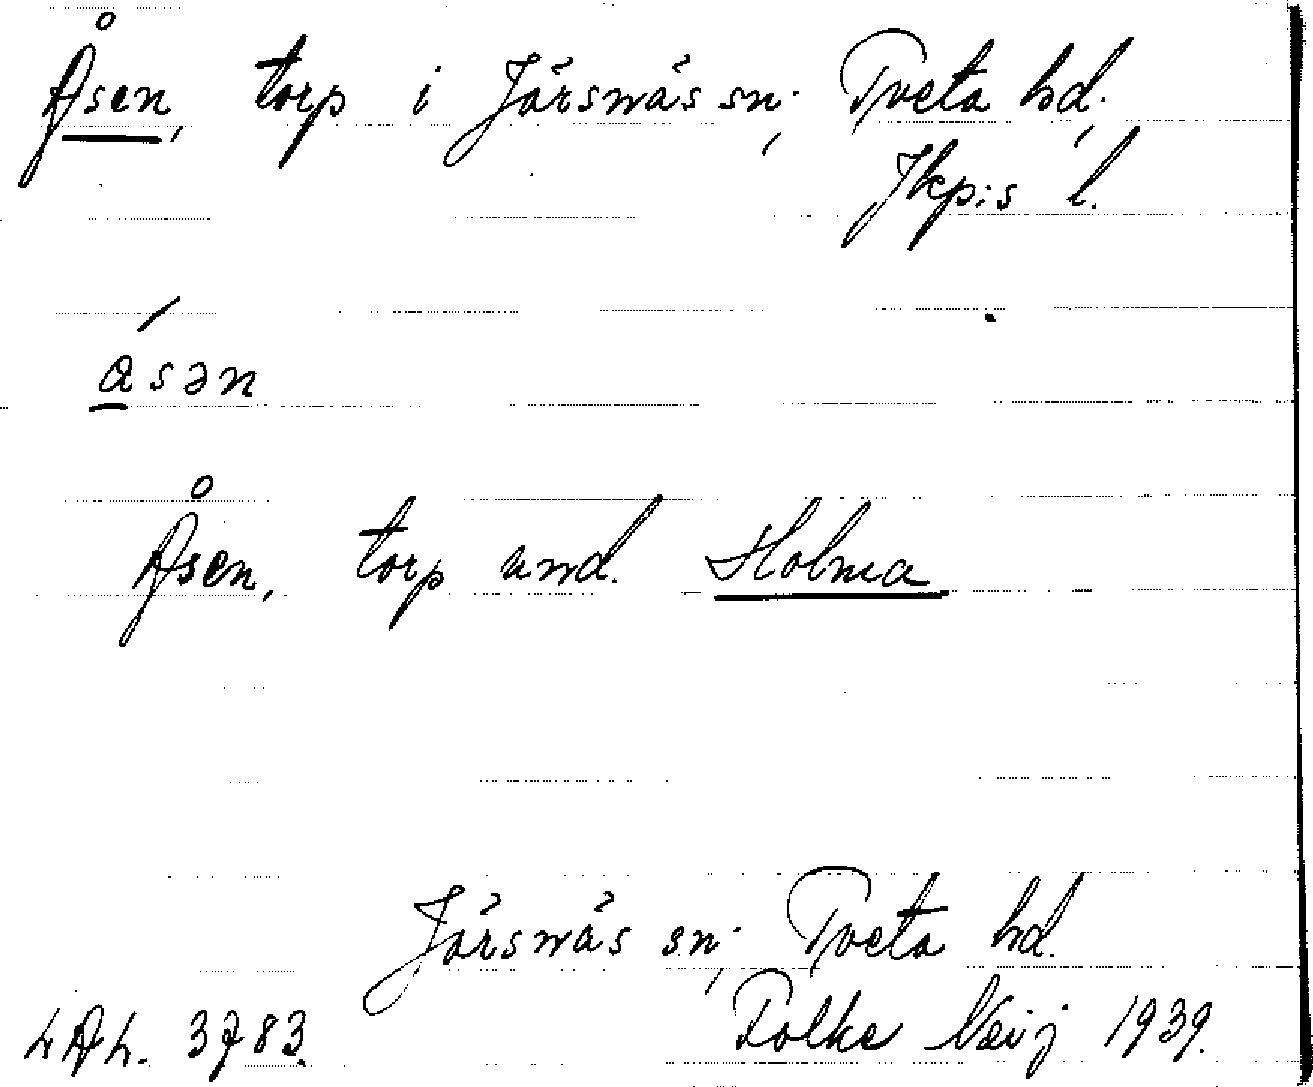 Åsen, torp i Järsnäs sn., Tveta hd.,
Jkp:s l.
åsən
Åsen, torp und. Holma
Järsnäs sn., Tveta hd.
LAL. 3783. Folke Neij 1939.